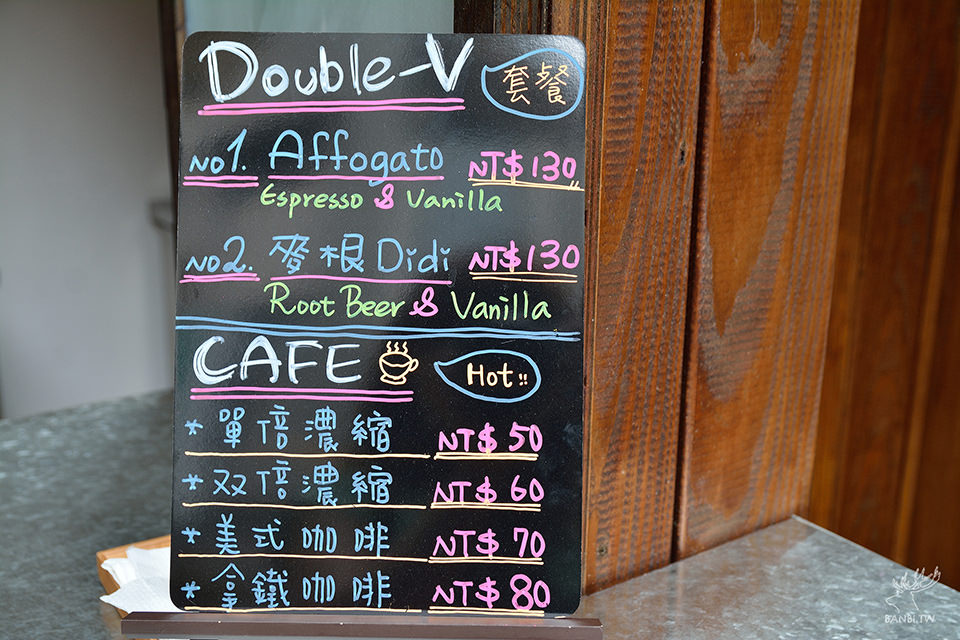 Double-V 套餐
NO1. Affogato NT$130
Espresso & Vanilla
NO2. 麥根Didi NT$130
Root Beer & Vanilla
CAFE Hot!!
*單倍濃縮 NT$50
*双倍濃縮 NT$60
*美式咖啡 NT$70
*拿鐵咖啡 NT$80
BANBI.TW